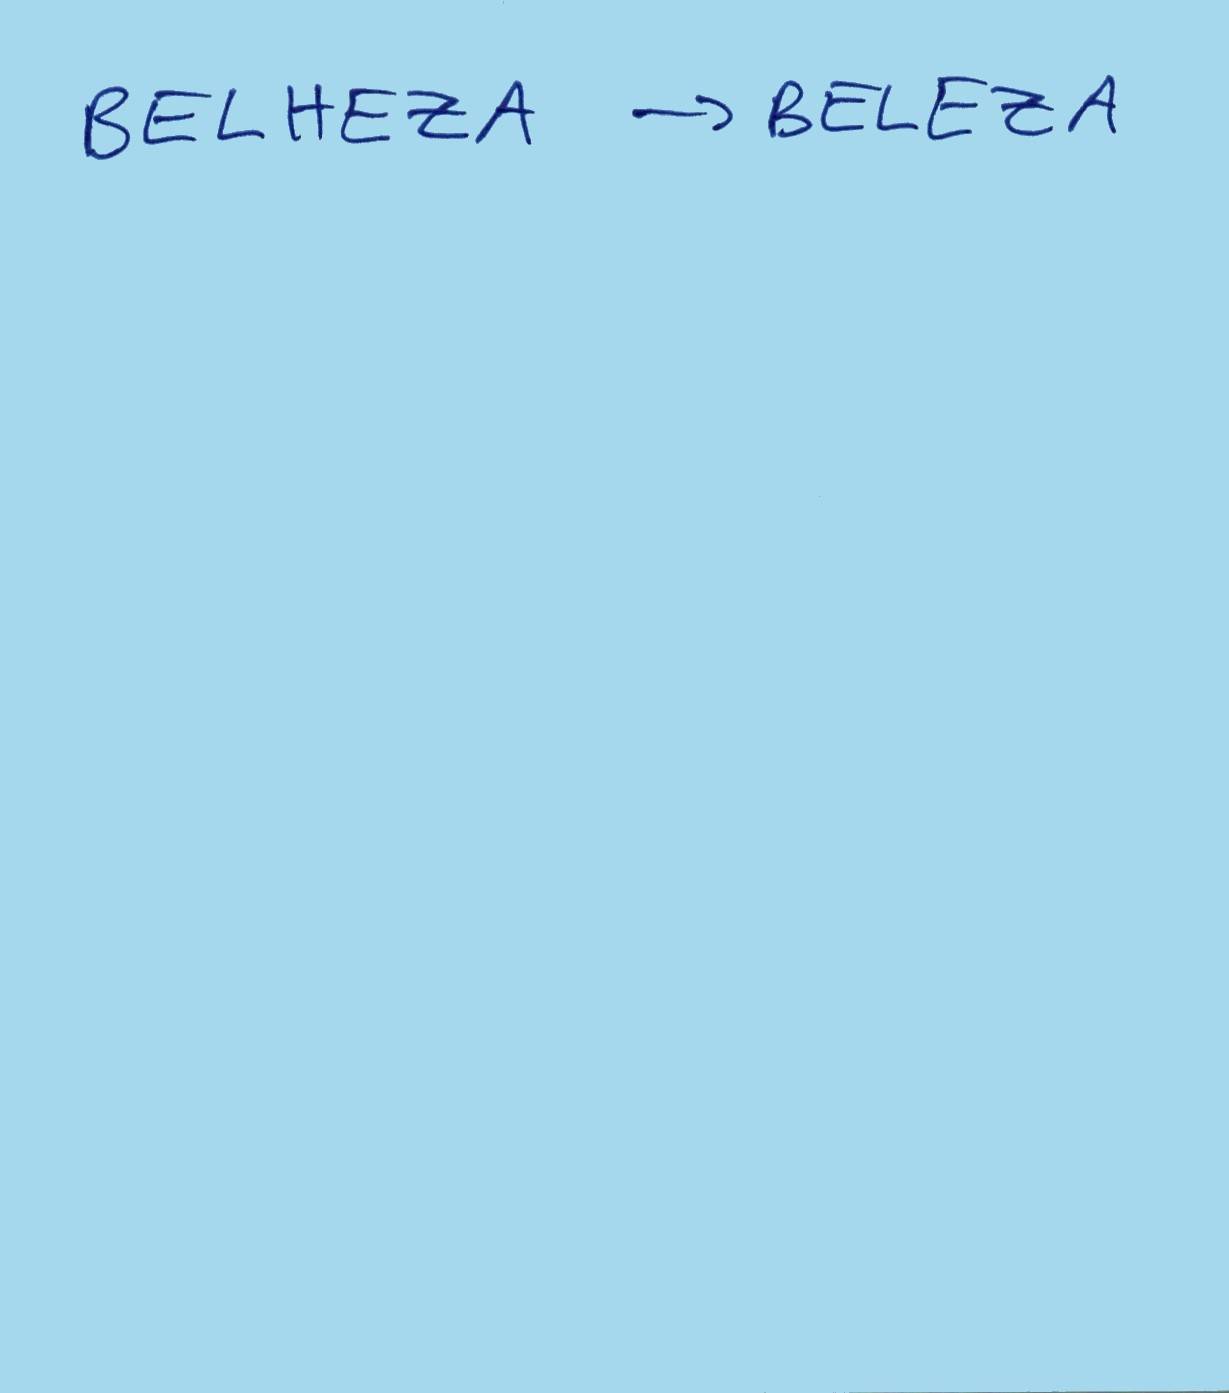 BELHEZA → BELEZA